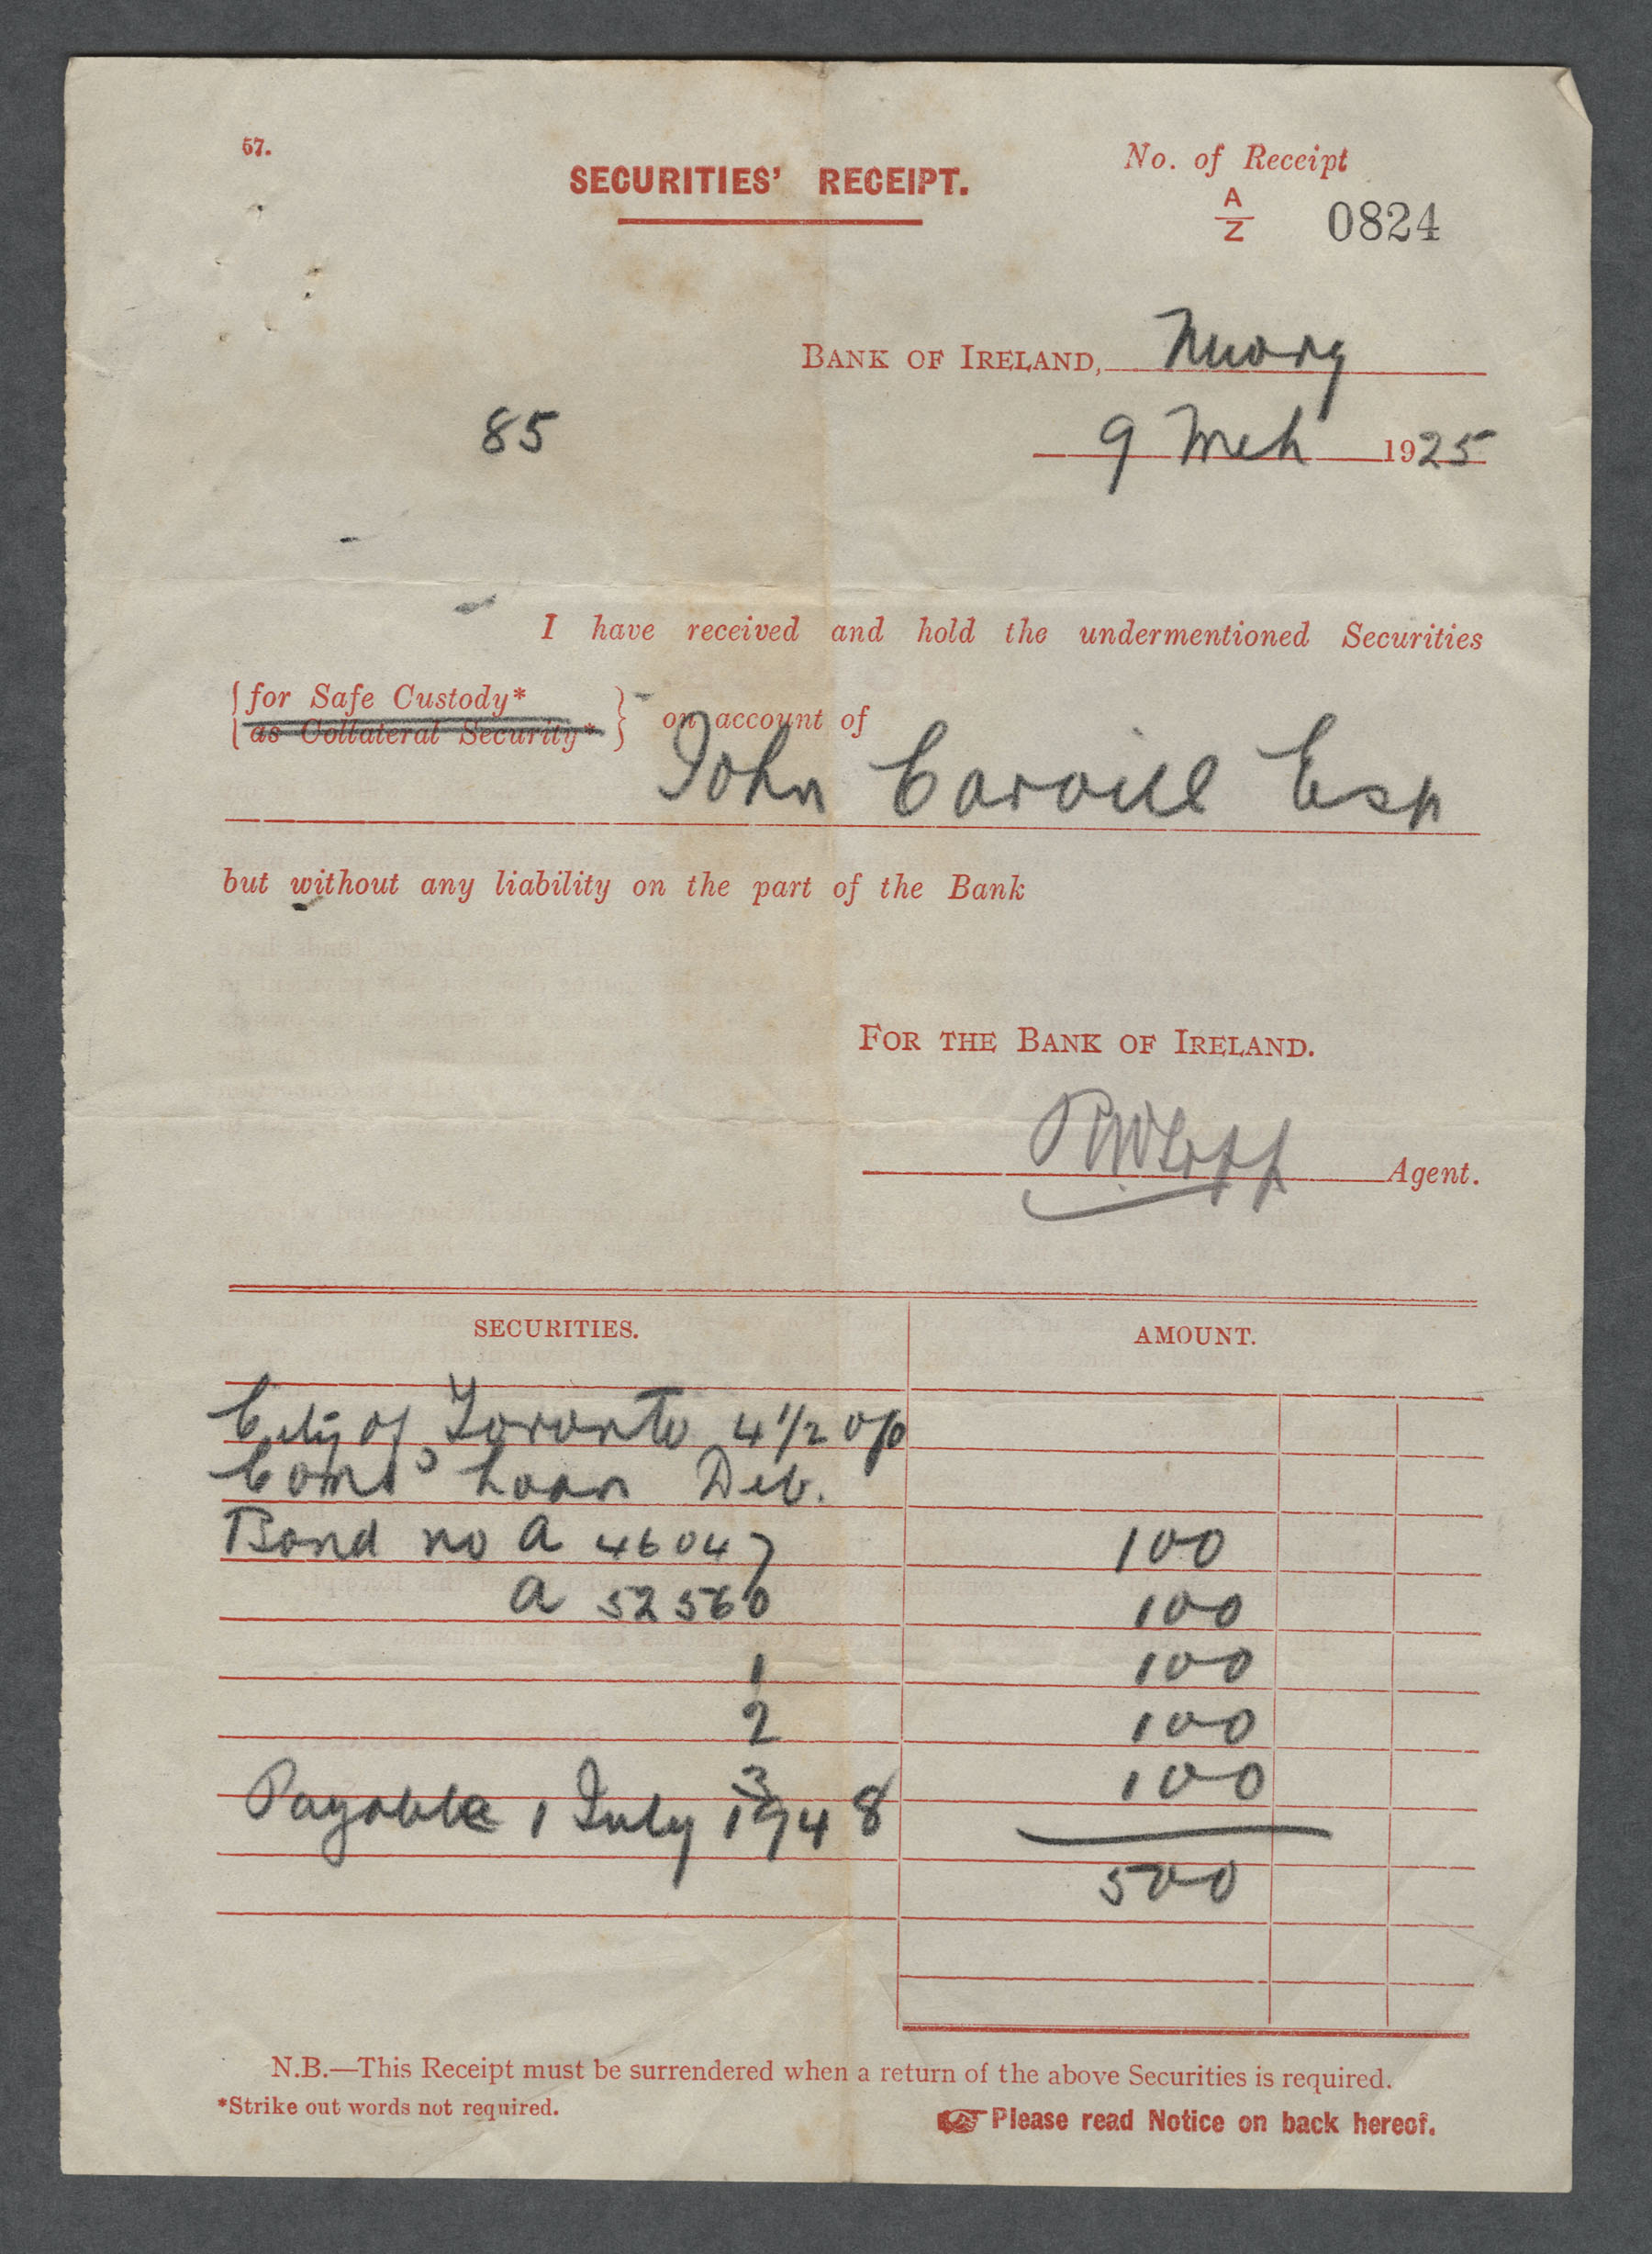 57.
SECURITIES' RECEIPT.
No. of Receipt
A/Z 0824
BANK OF IRELAND, Newry
85
9 Mch 1925
I have received and hold the undermentioned Securities
{for Safe Custody*
{as Collateral Security*} on account of
John Carvill Esq
but without any liability on the part of the Bank
FOR THE BANK OF IRELAND.
Agent.
SECURITIES. AMOUNT.
City of Toronto 4 1/2 o/o
Consd Loan Deb.
Bond no A 46047 100
A 52560 100
1 100
2 100
3 100
Payable 1 July 1948
500
N.B.—This Receipt must be surrendered when a return of the above Securities is required.
*Strike out words not required.
☞ Please read Notice on back hereof.